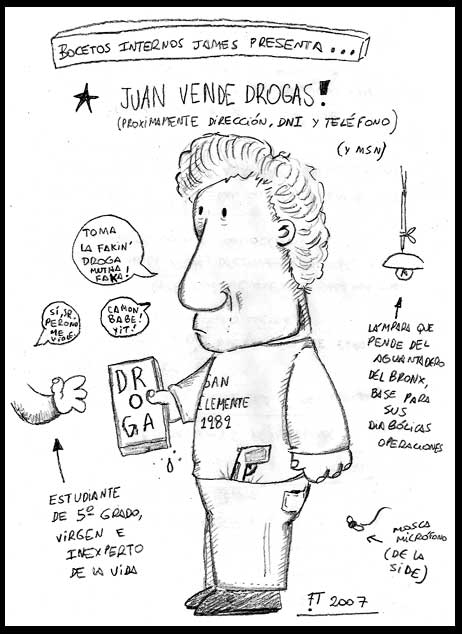 BOCETOS INTERNOS JAMES PRESENTA...
JUAN VENDE DROGAS!
(PROXIMAMENTE DIRECCIÓN, DNI Y TELÉFONO)
(Y MSN)
TOMA
LA FAKIN'
DROGA
MUTHA
FAKA!
SÍ, SR.
PERO NO
ME VIOLE.
CAMON
BABE!
YIT!
DROGA
SAN
CLEMENTE
1989
LAMPARA QUE
PENDE DEL
AGUANTADERO
DEL BRONX,
BASE PARA
SUS
DIABÓLICAS
OPERACIONES
ESTUDIANTE
DE 5º GRADO,
VIRGEN E
INEXPERTO
DE LA VIDA
MOSCA
MICRÓFONO
(DE LA
SIDE)
FT 2007